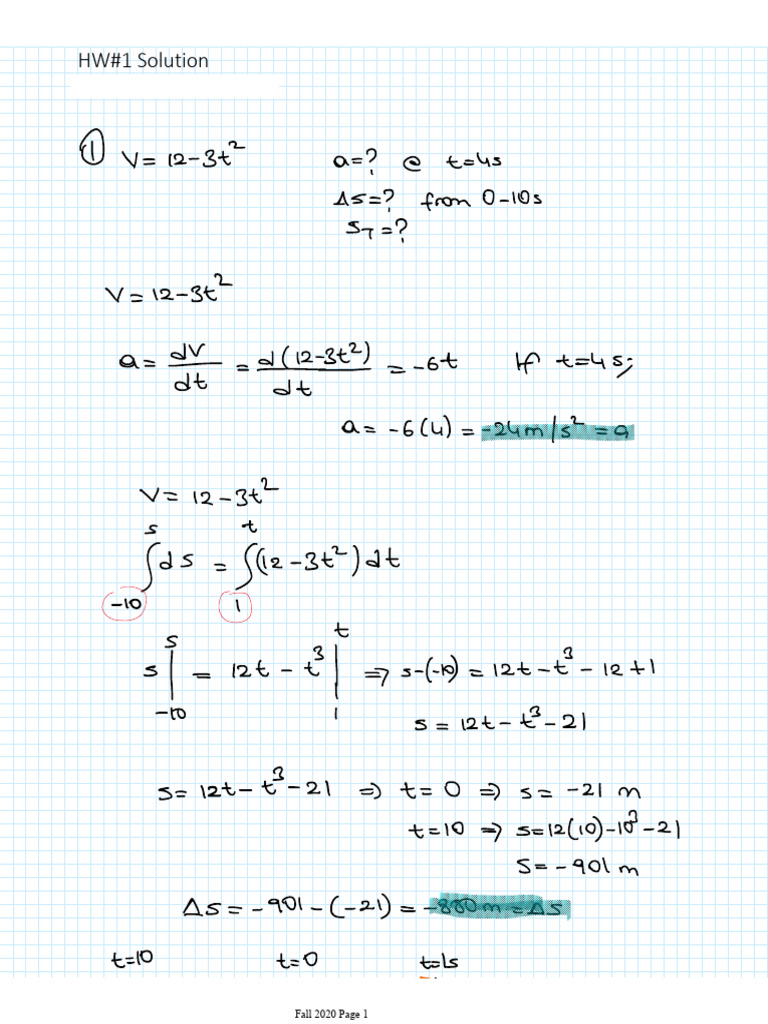 HW#1 Solution
① V = 12-3t² a=? @ t=4s
Δs=? from 0-10s
S_T=?
V = 12-3t²
a = dV/dt = d(12-3t²)/dt = -6t If t=4s;
a = -6(4) = -24m/s² = a
V = 12-3t²
∫_{-10}^{s} ds = ∫_{1}^{t} (12-3t²)dt
s|_{-10}^{s} = 12t - t³|_{1}^{t} ⇒ s-(-10) = 12t-t³-12+1
s = 12t-t³-21
s = 12t-t³-21 ⇒ t=0 ⇒ s = -21 m
t=10 ⇒ s=12(10)-10³-21
S=-901 m
Δs = -901-(-21) = -880 m = Δs
t=10 t=0 t=1s
Fall 2020 Page 1